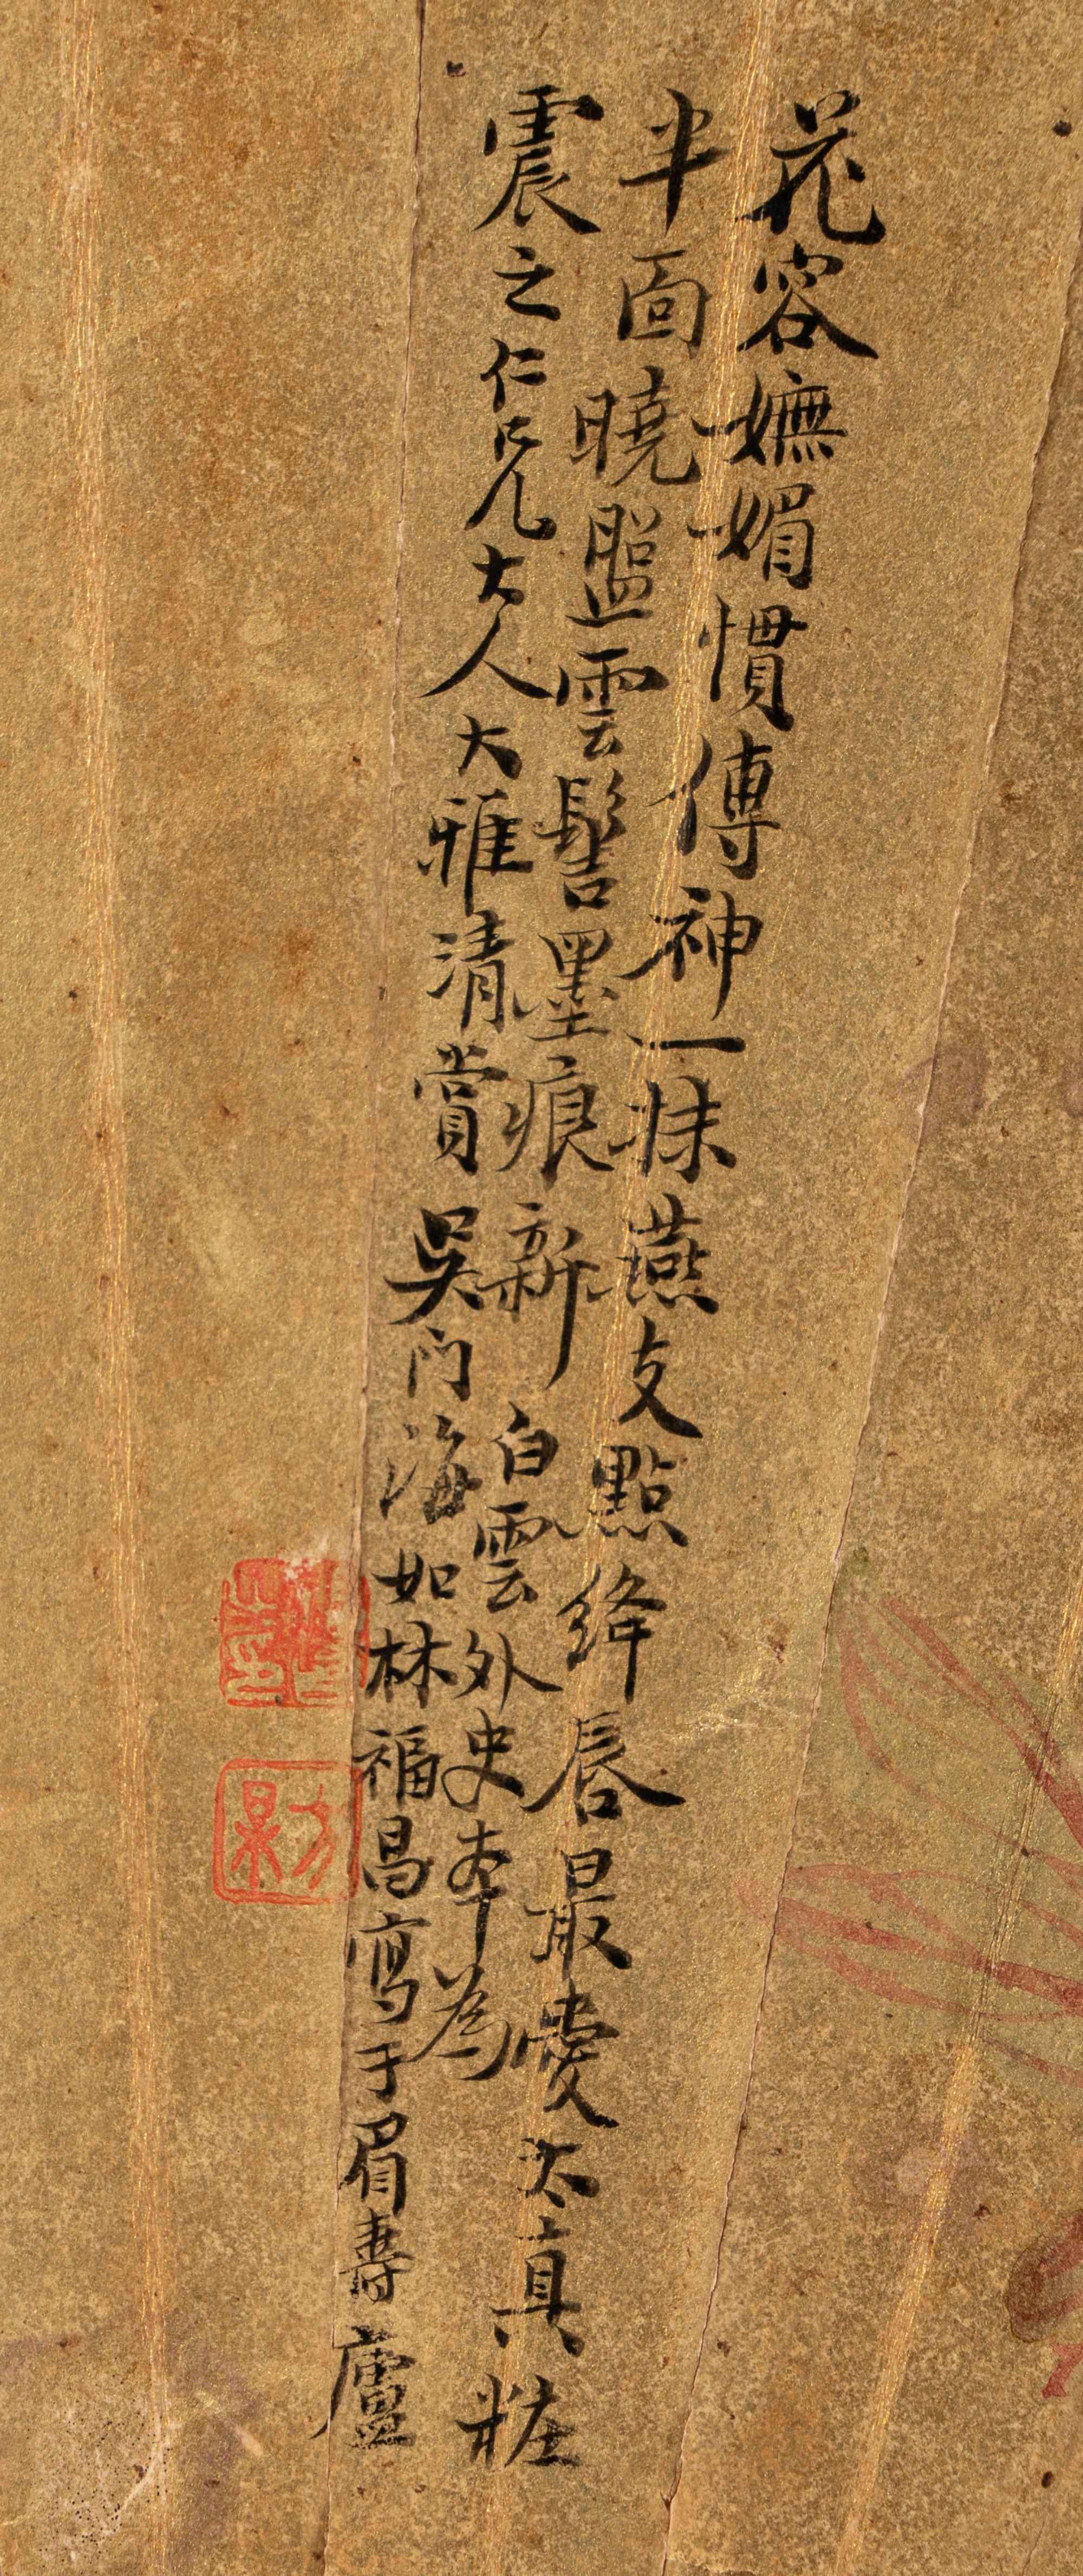 花容嫵媚慣傳神一抺燕支點絳唇最愛太真粧
半面曉盥雲髻墨痕新 白雲外史本為
震之仁兄大人大雅清賞 吳門海如林福昌寫于眉壽廬